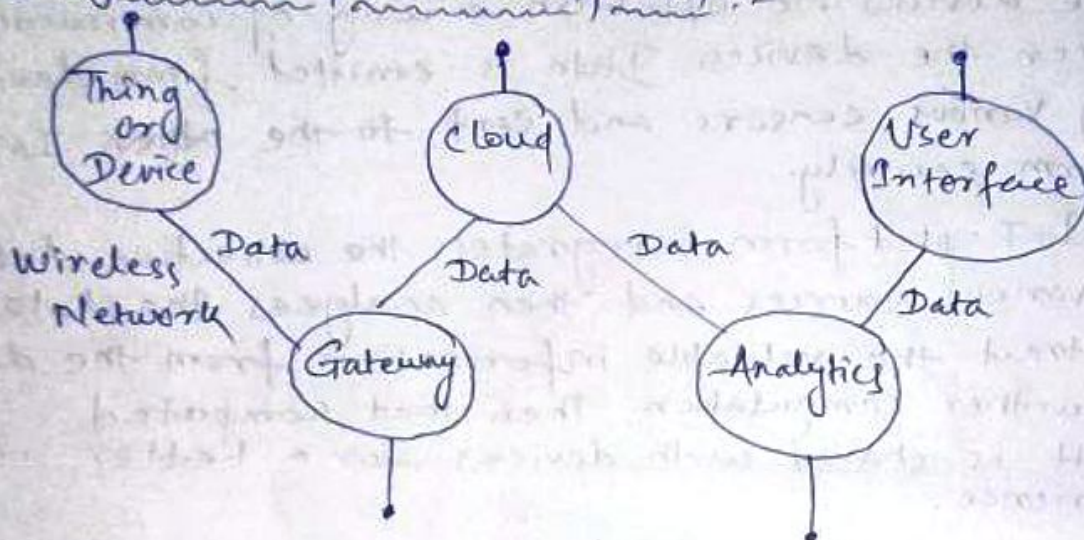 Thing
or
Device
Cloud
User
Interface
Wireless
Network
Data
Data
Data
Data
Gateway
Analytics